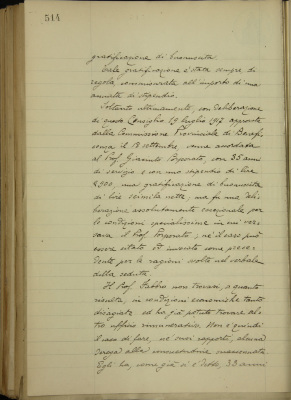 544
gratificazione di buonuscita.
Tale gratificazione è stata sempre di
regola commisurata all'importo di una
annualità di stipendio.
Soltanto ultimamente, con deliberazione
di questo Consiglio 19 luglio 1917 approvata
dalla Commissione Provinciale di Benefi-
cenza il 18 settembre, venne accordata
al Prof. con 35 anni
di servizio e con uno stipendio di lire
2900, una gratificazione di buonuscita
di lire seimila nette, ma fu una deli-
berazione assolutamente eccezionale, per
le condizioni specialissime in cui ver-
sava il Prof. nè il caso può
essere citato ed invocato come prece-
dente per le ragioni svolte nel verbale
della seduta.
Il Prof. Fabbio non trovasi, a quanto
risulta, in condizioni economiche tanto
disagiate ed ha già potuto trovare al-
tro ufficio rimunerativo. Non è quindi
il caso di fare, nei suoi rapporti, alcuna
deroga alla consuetudine
Egli ha, come già si è detto, 33 anni